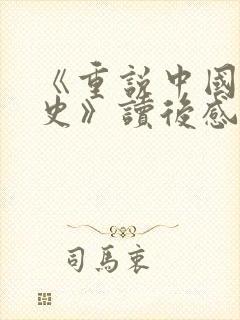 《重說中國
史》讀後感
司馬衷